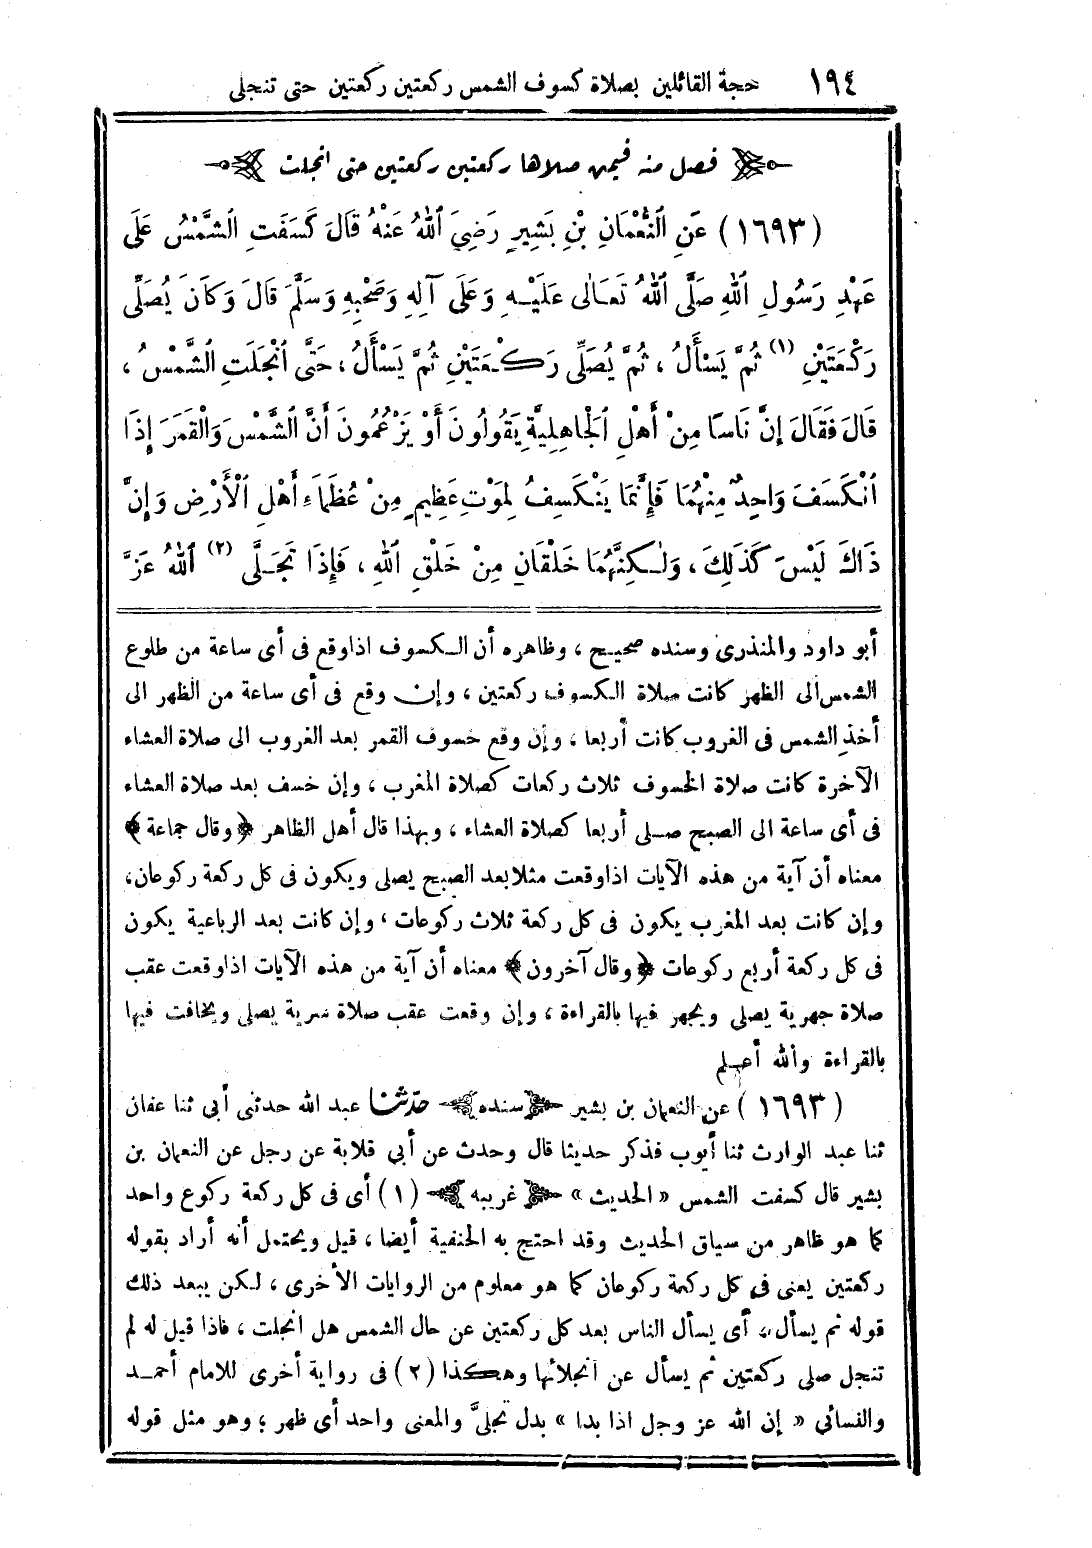 ١٩٤ حجة القائلين بصلاة كسوف الشمس ركعتين ركعتين حتى تنجلى
فصل منه فيمن صلاها ركعتين ركعتين حتى انجلت
(١٦٩٣) عَنِ ٱلنُّعْمَانِ بْنِ بَشِيرٍ رَضِيَ ٱللهُ عَنْهُ قَالَ كَسَفَتِ ٱلشَّمْسُ عَلَى
عَهْدِ رَسُولِ ٱللهِ صَلَّى ٱللهُ تَعَالَى عَلَيْهِ وَعَلَى آلِهِ وَصَحْبِهِ وَسَلَّمَ قَالَ وَكَانَ يُصَلِّى
رَكْعَتَيْنِ (١) ثُمَّ يَسْأَلُ ، ثُمَّ يُصَلِّى رَكْعَتَيْنِ ثُمَّ يَسْأَلُ ، حَتَّى ٱنْجَلَتِ ٱلشَّمْسُ ،
قَالَ فَقَالَ إِنَّ نَاسًا مِنْ أَهْلِ ٱلْجَاهِلِيَّةِ يَقُولُونَ أَوْ يَزْعُمُونَ أَنَّ ٱلشَّمْسَ وَٱلْقَمَرَ إِذَا
ٱنْكَسَفَ وَاحِدٌ مِنْهُمَا فَإِنَّمَا يَنْكَسِفُ لِمَوْتِ عَظِيمٍ مِنْ عُظَمَاءِ أَهْلِ ٱلْأَرْضِ وَإِنَّ
ذَاكَ لَيْسَ كَذَلِكَ ، وَلٰكِنَّهُمَا خَلْقَانِ مِنْ خَلْقِ ٱللهِ ، فَإِذَا تَجَلَّى (٢) ٱللهُ عَزَّ
أبو داود والمنذرى وسنده صحيح ، وظاهره أن الكسوف اذا وقع فى أى ساعة من طلوع
الشمس الى الظهر كانت صلاة الكسوف ركعتين ، وإن وقع فى أى ساعة من الظهر الى
أخذ الشمس فى الغروب كانت أربعا ، وإن وقع خسوف القمر بعد الغروب الى صلاة العشاء
الآخرة كانت صلاة الخسوف ثلاث ركعات كصلاة المغرب ، وإن خسف بعد صلاة العشاء
فى أى ساعة الى الصبح صلى أربعا كصلاة العشاء ، وبهذا قال أهل الظاهر ﴿وقال جماعة﴾
معناه أن آية من هذه الآيات اذا وقعت مثلا بعد الصبح يصلى ويكون فى كل ركعة ركوعان،
وإن كانت بعد المغرب يكون فى كل ركعة ثلاث ركوعات ، وإن كانت بعد الرباعية يكون
فى كل ركعة أربع ركوعات ﴿وقال آخرون﴾ معناه أن آية من هذه الآيات اذا وقعت عقب
صلاة جهرية يصلى ويجهر فيها بالقراءة ، وإن وقعت عقب صلاة سرية يصلى ويخافت فيها
بالقراءة والله أعلم
(١٦٩٣) عن النعمان بن بشير سنده حدثنا عبد الله حدثنى أبى ثنا عفان
ثنا عبد الوارث ثنا أيوب فذكر حديثا قال وحدث عن أبى قلابة عن رجل عن النعمان بن
بشير قال كسفت الشمس « الحديث » غريبه (١) أى فى كل ركعة ركوع واحد
كما هو ظاهر من سياق الحديث وقد احتج به الحنفية أيضا ، قيل ويحتمل أنه أراد بقوله
ركعتين يعنى فى كل ركعة ركوعان كما هو معلوم من الروايات الأخرى ، لكن يبعد ذلك
قوله ثم يسأل ، أى يسأل الناس بعد كل ركعتين عن حال الشمس هل انجلت ، فاذا قيل له لم
تنجل صلى ركعتين ثم يسأل عن انجلائها وهكذا (٢) فى رواية أخرى للامام أحمد
والنسائى « إن الله عز وجل اذا بدا » بدل تجلىَّ والمعنى واحد أى ظهر ، وهو مثل قوله